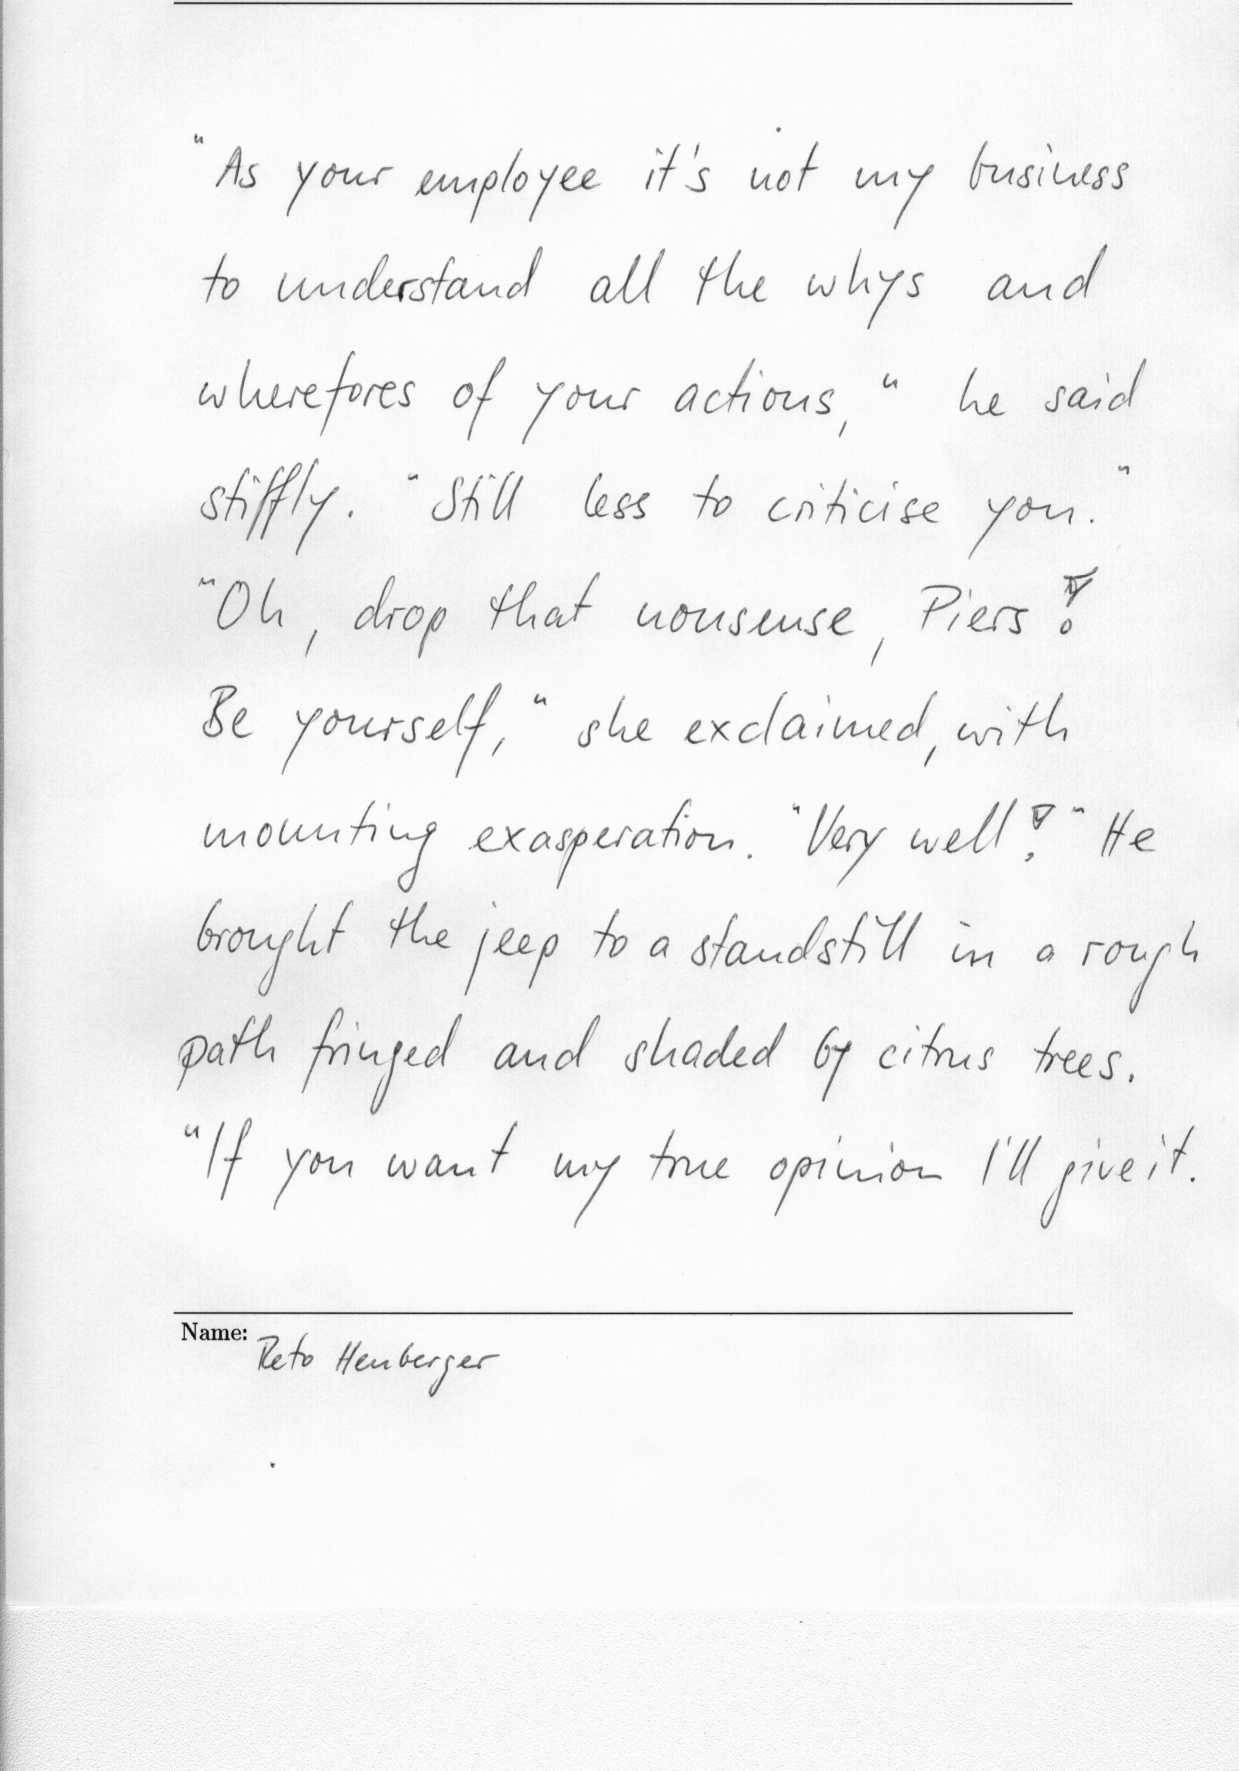 "As your employee it's not my business
to understand all the whys and
wherefores of your actions," he said
stiffly. "Still less to criticise you."
"Oh, drop that nonsense, Piers!
Be yourself," she exclaimed, with
mounting exasperation. "Very well!" He
brought the jeep to a standstill in a rough
path fringed and shaded by citrus trees.
"If you want my true opinion I'll give it.
Name:
Reto Heuberger